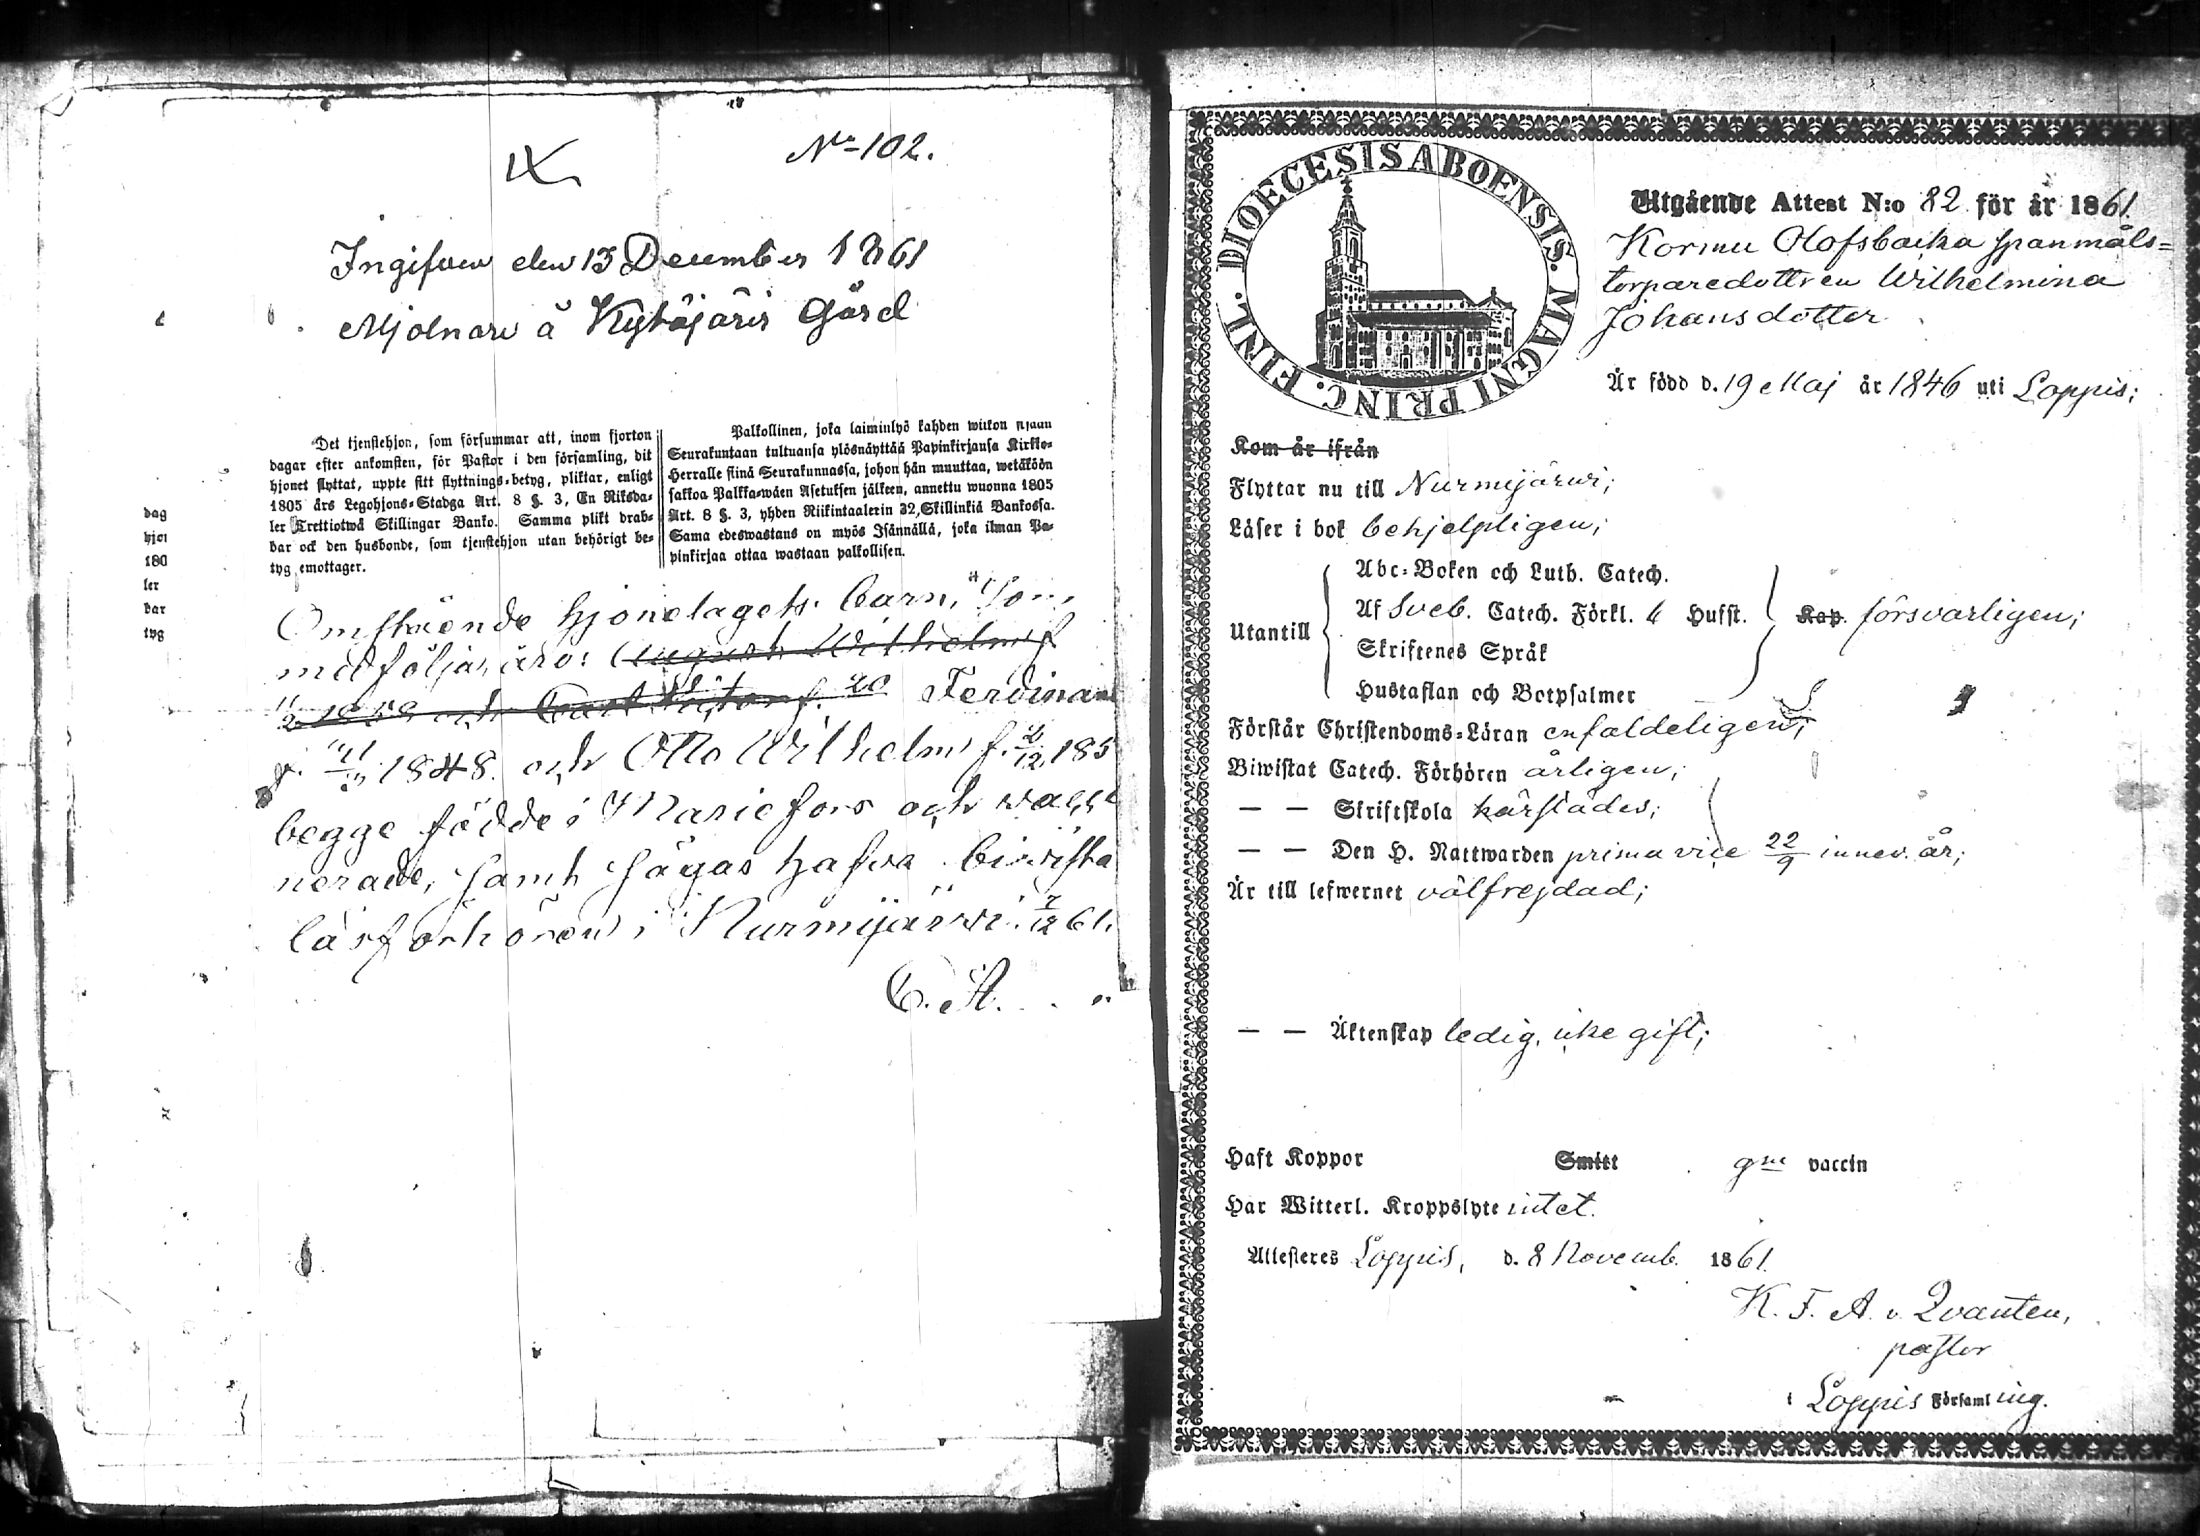 No 102.
Ingifven den 13 December 1861
Mjolnare å Kytäjärvi Gård
Det tjenstehjon, som försummar att, inom fjorton
dagar efter ankomsten, för Pastor i den församling, dit
hjonet flyttat, uppte sitt flyttnings-betyg, pliktar, enligt
1805 års Legohjons-Stadga Art. 8 §. 3, En Riksda-
ler Trettiotwå Skillingar Banko. Samma plikt drab-
bar ock den husbonde, som tjenstehjon utan behörigt be-
tyg emottager.
Palkollinen, joka laiminlyö kahden wiikon sisään
Seurakuntaan tultuansa ylösnäyttää Papinkirjansa Kirkko-
Herralle siinä Seurakunnassa, johon hän muuttaa, wetäköön
sakkoa Palkka-wäen Asetuksen jälkeen, annettu wuonna 1805
Art. 8 §. 3, yhden Riikintaalerin 32 Skillinkiä Bankossa.
Sama edeswastaus on myös Isännällä, joka ilman Pa-
pinkirjaa ottaa wastaan palkollisen.
dag
hjon
180
ler
bar
tyg
Omstående hjonelagets barn, som
medfölja, äro: August Wilhelm f.
1859 och Carl Victor f. Ferdinand
f. 1848. och Otto Wilhelm f. 2/12 185
begge födde i Mariefors och vacci
nerade, samt sägas hafva bivista
läsförhören i Nurmijärvi. 7/12 61.
C. A.
DIOECESIS ABOENSIS. MAGNI PRINC. FINL.
Utgående Attest N:o 82 för år 1861.
Kormu Olofsbacka spanmåls-
torparedottren Wilhelmina
Johansdotter
Är född d. 19 Maj år 1846 uti Loppis;
Kom år ifrån
Flyttar nu till Nurmijärvi;
Läser i bok behjelpligen;
Utantill
Abc-Boken och Luth. Catech.
Af Sveb. Catech. Förkl. 6 Hufst. Kap. försvarligen;
Skriftenes Språk
Hustaflan och Botpsalmer
Förstår Christendoms-Läran enfaldeligen;
Biwistat Catech. Förhören årligen;
— — Skriftskola härstädes;
— — Den H. Nattwarden prima vice 22/9 innev. år;
Är till lefwernet välfrejdad;
— — Äktenskap ledig, icke gift;
Haft Koppor Smitt gne vaccin
Har Witterl. Kroppslyte intet.
Attesteres Loppis, d. 8 Novemb. 1861.
K. F. A. v. Qvanten,
pastor
i Loppis Församling.